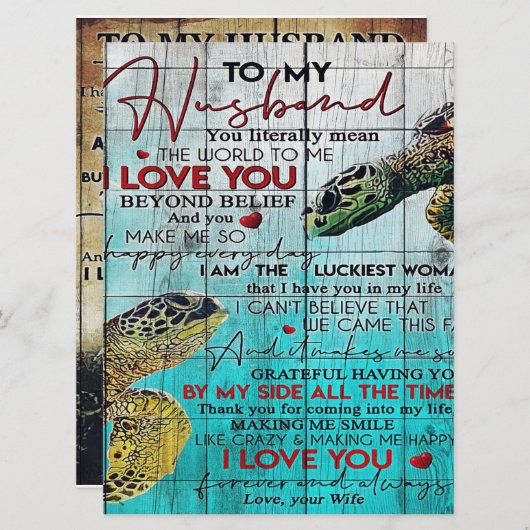 TO MY HUSBAND
TO MY
Husband
You literally mean
THE WORLD TO ME
I LOVE YOU
BEYOND BELIEF
And you
MAKE ME SO
happy every day
I AM THE LUCKIEST WOMA
that I have you in my life
I CAN'T BELIEVE THAT
WE CAME THIS FA
And it makes me so
GRATEFUL HAVING YO
BY MY SIDE ALL THE TIME
Thank you for coming into my life,
MAKING ME SMILE
LIKE CRAZY & MAKING ME HAPPY
I LOVE YOU
forever and always
Love, your Wife